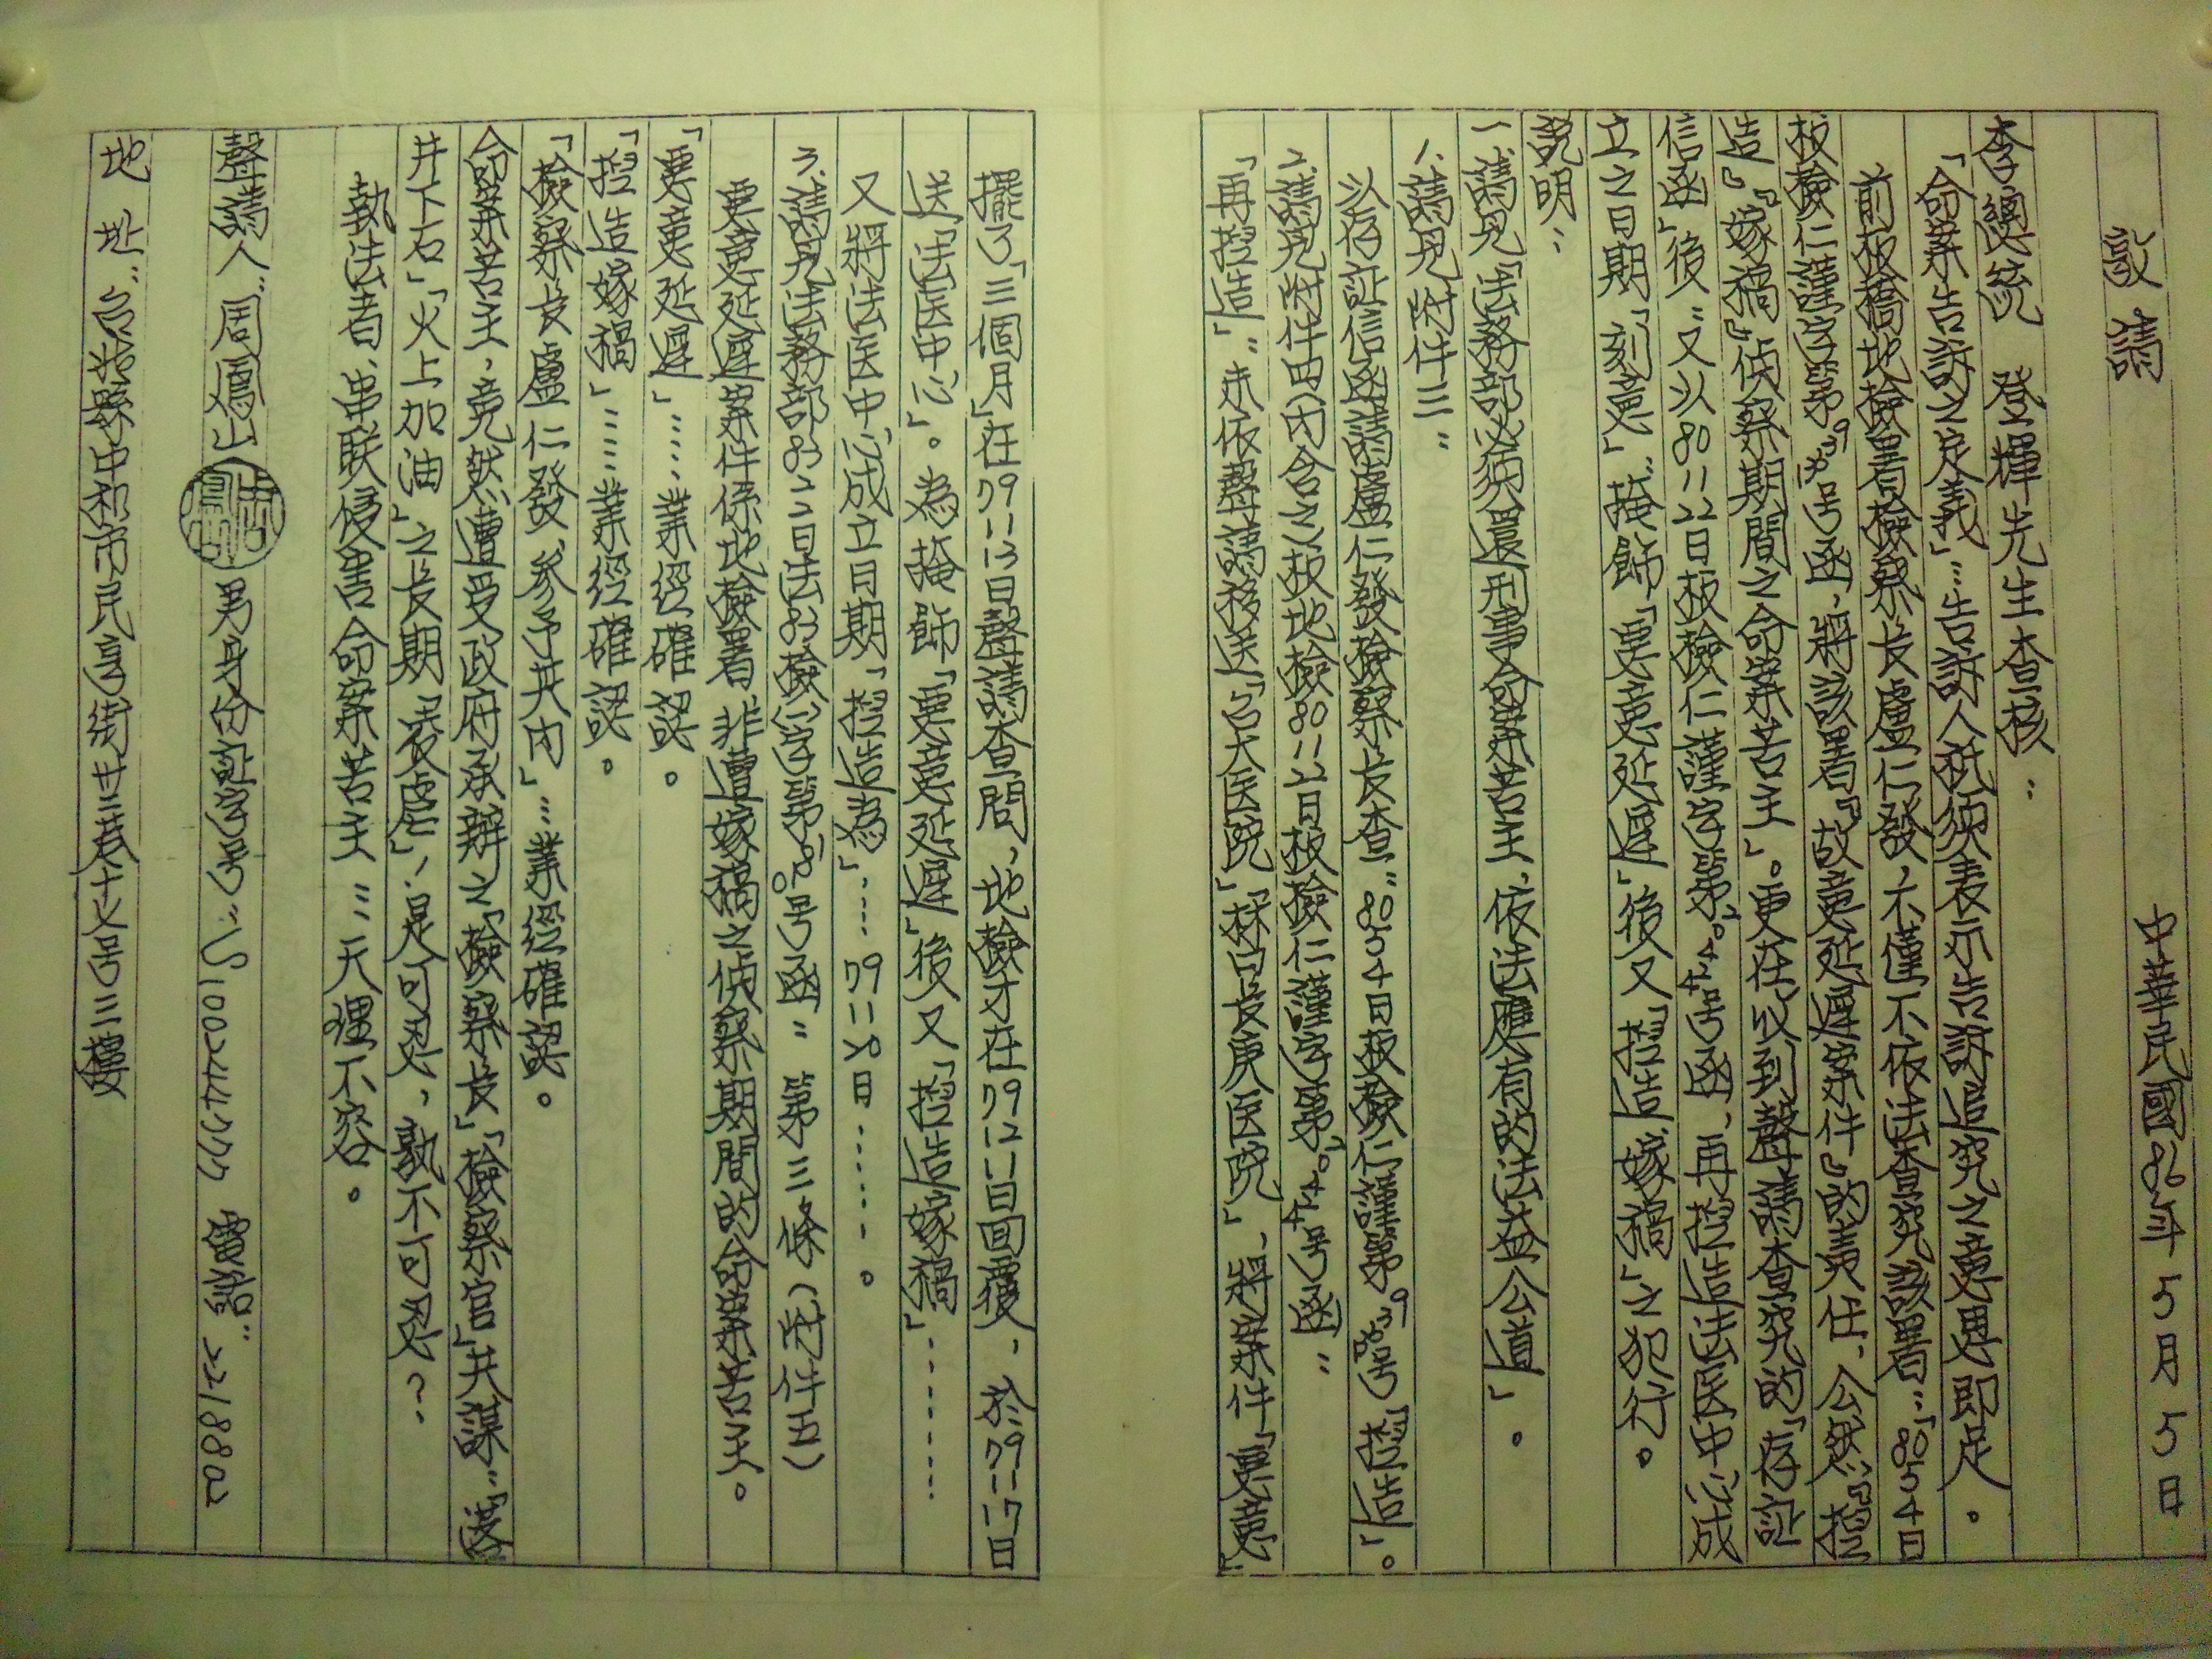 敬請
中華民國86年5月5日
李總統 登輝先生查核：
「命案告訴之定義」…告訴人祇須表示告訴追究之意思即足。
前板橋地檢署檢察長盧仁發，不僅不依法查究該署…「80 5 4日
板檢仁謹字第 號函，將該署『故意延遲案件』的責任，公然『控
造』『嫁禍』偵察期間之命案苦主」。更在以到聲請查究的「存証
信函」後：又以80 11 22日板檢仁謹字第 號函，再控造法医中心成
立之日期「刻意」掩飾「惡意延遲」後又「控造嫁禍」之犯行。
說明：
一、請見「法務部必須還刑事命案苦主，依法應有的法益公道」。
1.請見附件三：
以存証信函請盧仁發檢察長查：80 5 4日板檢仁謹第 號「控造」。
2.請見附件四內含之板地檢80 11 22日板檢仁謹字第 號函：
「再控造」：未依聲請移送「台大医院」「林口長庚医院」，將案件「惡意」
擺了「三個月」在79 11 13日聲請查問，地檢才在79 12 11日回覆，於79 11 17日
送「法医中心」。為掩飾「惡意延遲」後又「控造嫁禍」………
又將法医中心成立日期「控造為」……79 11 28日……。
3.請見法務部83 2 2日法83檢 字第 號函：第三條（附件五）
惡意延遲案件係地檢署，非遭嫁禍之偵察期間的命案苦主。
「惡意延遲」……業經確認。
「控造嫁禍」……業經確認。
「檢察長盧仁發，參予其內」…業經確認。
命案苦主，竟然遭受政府承辦之「檢察長」「檢察官」共謀…「落
井下石」「火上加油」之長期「凌虐」，是可忍，孰不可忍？
執法者，串联侵害命案苦主…天理不容。
聲請人：周鳳山 男身份証字号：S100244333 電話：2218802
地 址：台北縣中和市民享街廿三巷十七号三樓